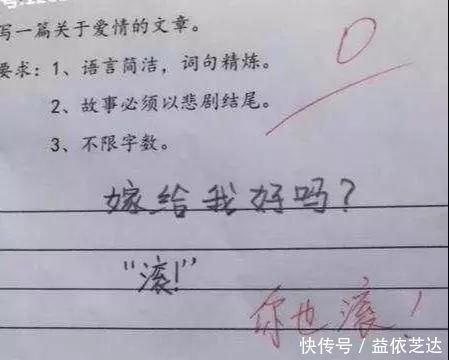 写一篇关于爱情的文章。
0
要求：1、语言简洁，词句精炼。
2、故事必须以悲剧结尾。
3、不限字数。
嫁给我好吗？
“滚！”
你也滚！
快传号/益依芝达